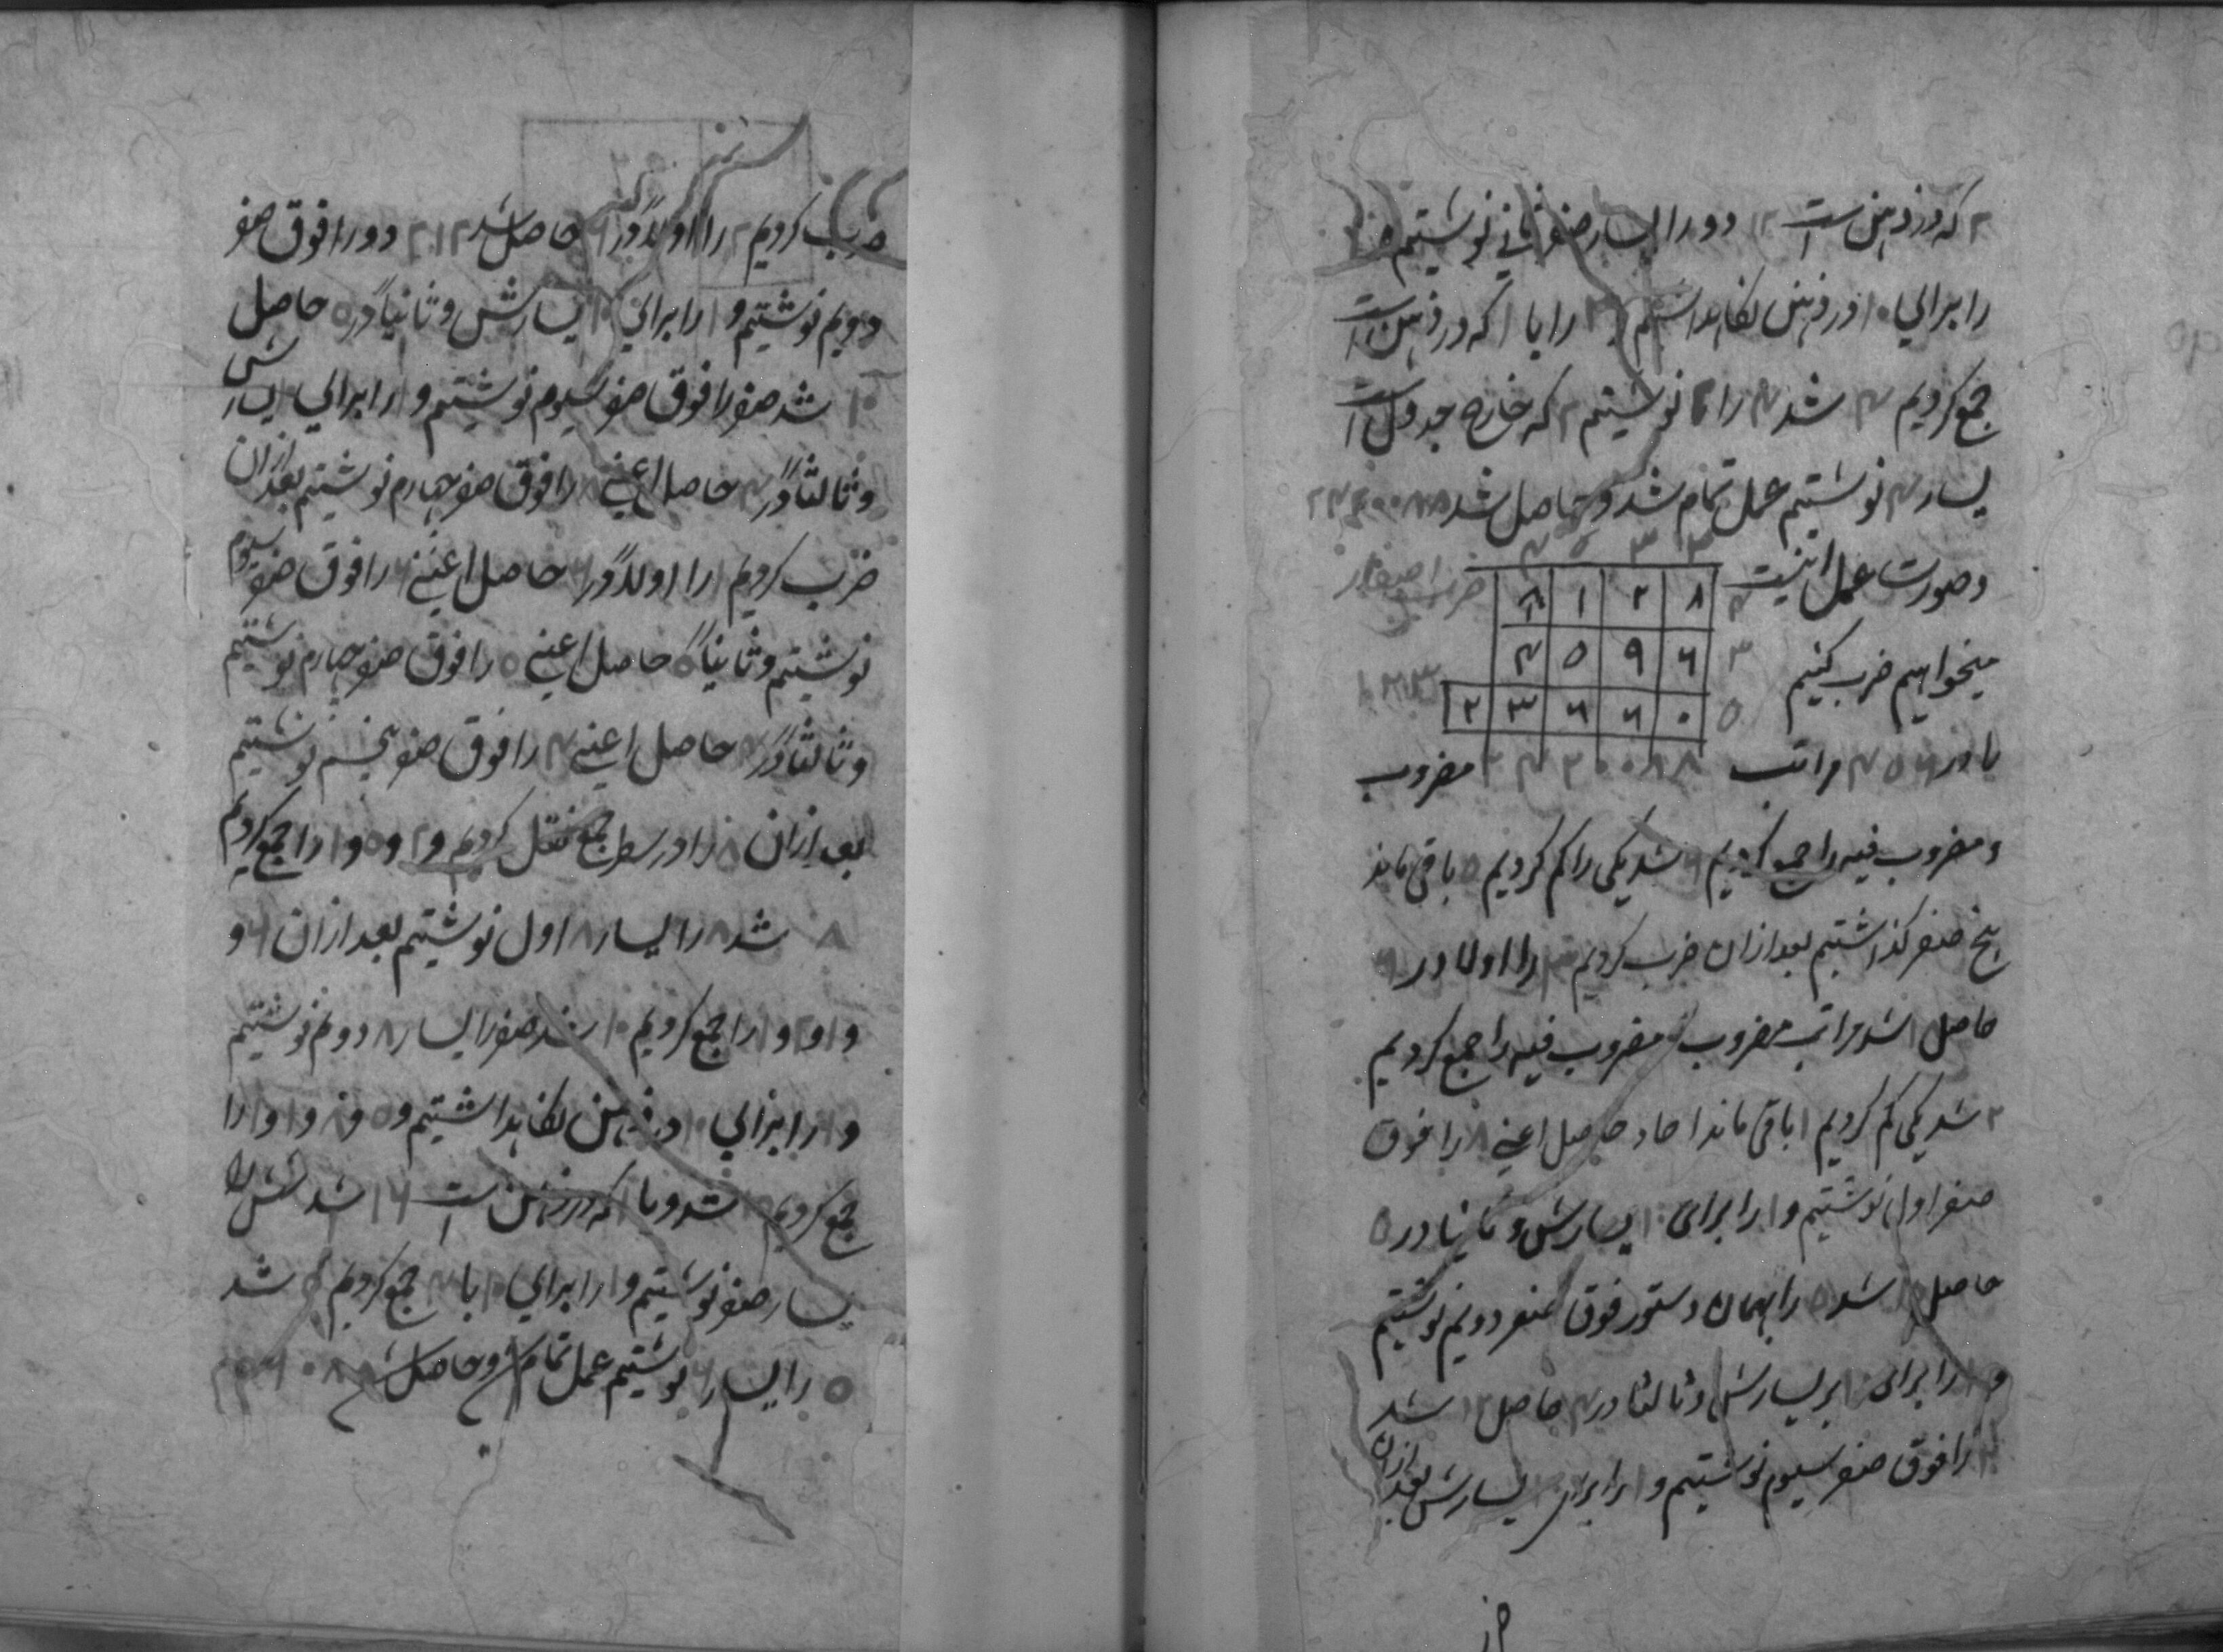 ۲ که در ذهن است ۱۲ دو را یسار صفر ثانی نوشتیم و ۱
را برای ۱۰ در ذهن نگاه داشتیم و ۳ را با ۱ که در ذهن است
جمع کردیم ۴ شد ۴ را نوشتیم ۲ که خارج جدول است
یسار ۴ نوشتیم عمل تمام شد و حاصل شد ۲۴۲۰۰۸۸
و صورت عمل اینست
ضرب اصفار
۸ ۲ ۱
۶ ۹ ۵ ۴
۰ ۶ ۶ ۳ ۲
میخواهیم ضرب کنیم
۱۲۳
را در ۴۵۶ مراتب
مضروب
و مضروب فیه را جمع کردیم ۶ شد یکی را کم کردیم ۵ باقی ماند
پنج صفر گذاشتیم بعد ازان ضرب کردیم ۳ را اولا در ۶
حاصل شد مراتب مضروب و مضروب فیه را جمع کردیم
۲ شد یکی کم کردیم ۱ باقی ماند احاد حاصل اعنی ۸ را فوق
صفر اول نوشتیم و ۱ را برای ۱۰ یسارش و ثانیا در ۵
حاصل ۱۵ شد ۵ را بهمان دستور فوق صفر دویم نوشتیم
و ۱ را برای ۱۰ بر یسارش و ثالثا در ۴ حاصل ۱۲ شد
۲ را فوق صفر سیوم نوشتیم و ۱ را برای یسارش بعد ازان
ضر
ضرب کردیم ۲ را اولاً در ۶ حاصل شد ۱۲ ۲ دو را فوق صفر
دویم نوشتیم و ۱ را برای ۱۰ یسارش و ثانیاً در ۵ حاصل
۱۰ شد صفر را فوق صفر سیوم نوشتیم و ۱ را برای یسارش
و ثالثاً در ۴ حاصل اعنی ۸ را فوق صفر چهارم نوشتیم بعد ازان
ضرب کردیم ۱ را اولاً در ۶ حاصل اعنی ۶ را فوق صفر سیوم
نوشتیم و ثانیاً ۵ حاصل اعنی ۵ را فوق صفر چهارم نوشتیم
و ثالثاً در ۴ حاصل اعنی ۴ را فوق صفر پنجم نوشتیم
بعد ازان ۸ را در سطر جمع نقل کردیم و ۲ و ۵ و ۱ را جمع کردیم
۸ شد ۸ را یسار ۸ اول نوشتیم بعد ازان ۶ و
و ۱ و ۲ و ۱ را جمع کردیم ۱۰ شد صفر را یسار ۸ دویم نوشتیم
و ۱ را برای ۱۰ در ذهن نگاه داشتیم و ۵ و ۸ و ۱ و ۱ را
جمع کردیم ۱۵ شد و با ۱ که در ذهن است ۱۶ شد شش را
یسار صفر نوشتیم و ۱ را برای ۱۰ با ۴ جمع کردیم ۵ شد
۵ را یسار ۶ نوشتیم عمل تمام شد و حاصل شد ۵۶۰۸۸